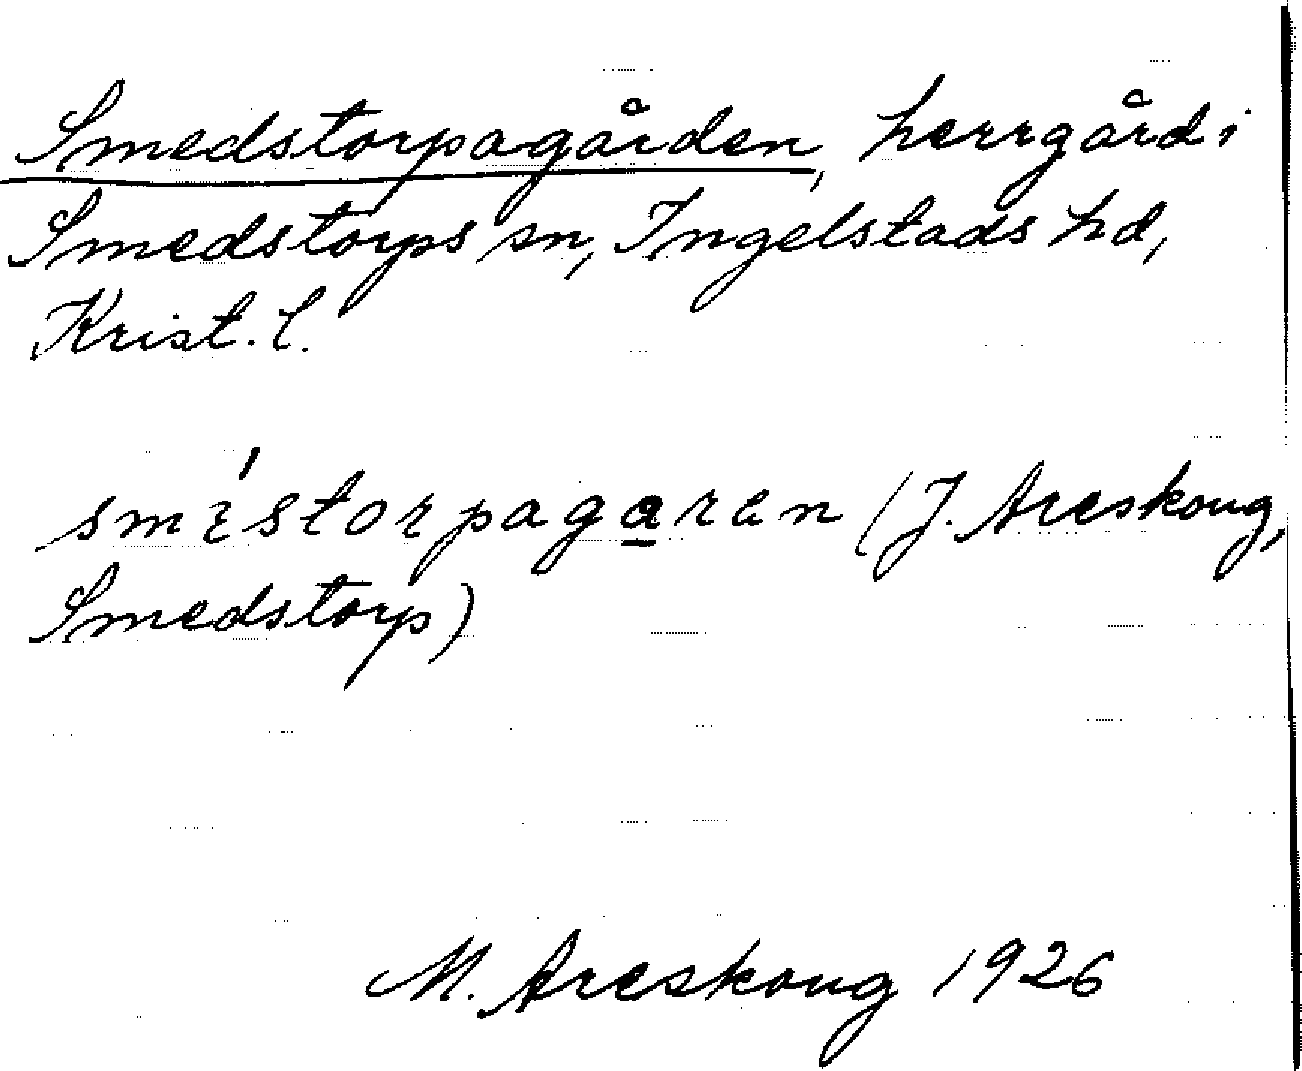 Smedstorpagården, herrgård i
Smedstorps sn, Ingelstads hd,
Krist. l.
(J. Areskoug,
Smedstorp)
M. Areskoug 1926